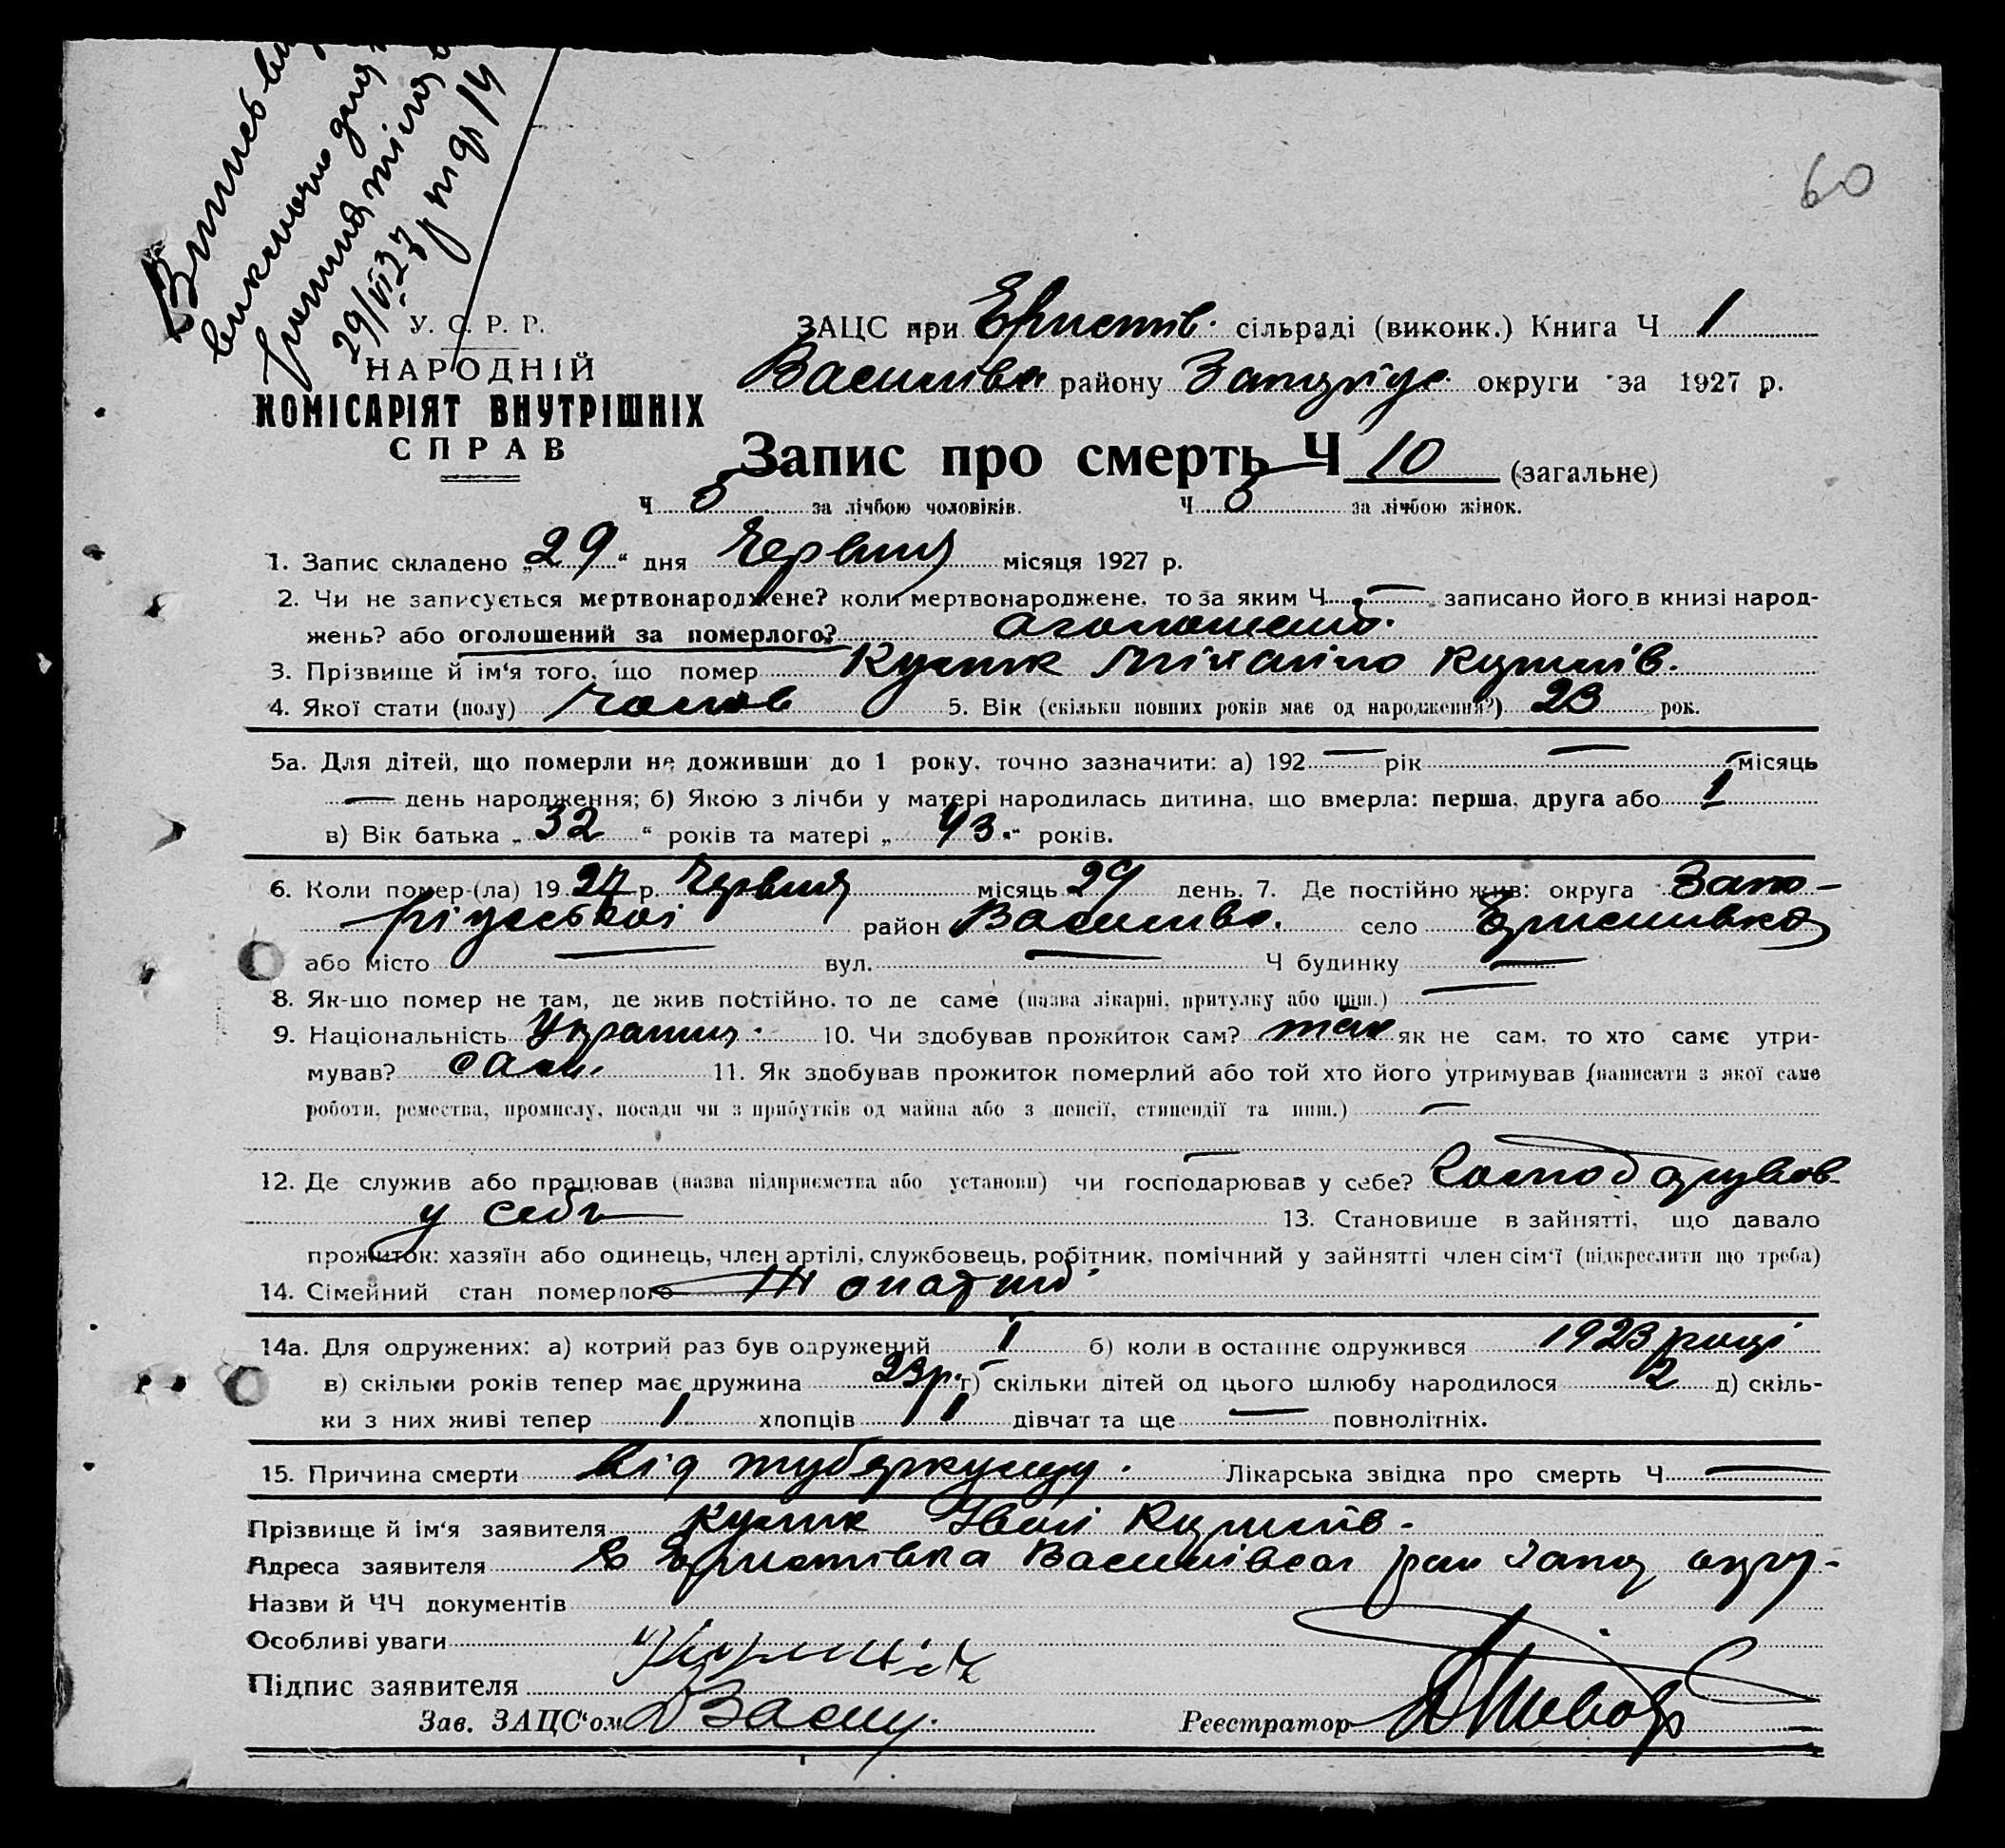 Випись
виключно для
29/VI 27
60
У. С. Р. Р.
НАРОДНІЙ
КОМІСАРІЯТ ВНУТРІШНІХ
СПРАВ
ЗАЦС при Еристів. сільраді (виконк.) Книга Ч 1
Василівск району округи за 1927 р.
Запис про смерть Ч 10 (загальне)
Ч за лічбою чоловіків. Ч за лічбою жінок.
1. Запис складено „ 29 “ дня Червня місяця 1927 р.
2. Чи не записується мертвонароджене? коли мертвонароджене, то за яким Ч — записано його в книзі народ-
жень? або оголошений за померлого?
3. Прізвище й ім‘я того, що помер Кулик Міхайло
4. Якої стати (полу) Чолов 5. Вік (скільки повних років має од народження?) 23 рок.
5а. Для дітей, що померли не доживши до 1 року, точно зазначити: а) 192 — рік — місяць
— день народження; б) Якою з лічби у матері народилась дитина, що вмерла: перша, друга або 1
в) Вік батька „ 32 “ років та матері „ 43 “ років.
6. Коли помер-(ла) 19 27 р. Червня місяць 29 день. 7. Де постійно жив: округа Запо-
ріжської район Василівс. село Еристівка
або місто — вул. — Ч будинку —
8. Як-що помер не там, де жив постійно, то де саме (назва лікарні, притулку або инш.) —
9. Національність Україн. 10. Чи здобував прожиток сам? так як не сам, то хто саме утри-
мував? сам. 11. Як здобував прожиток померлий або той хто його утримував (написати з якої саме
роботи, ремества, промислу, посади чи з прибутків од майна або з пенсії, стипендії та инш.) —
12. Де служив або працював (назва підприємства або установи) чи господарював у себе? Господарував
у себе 13. Становище в зайнятті, що давало
прожиток: хазяїн або одинець, член артілі, службовець, робітник, помічний у зайнятті член сім‘ї (підкреслити що треба)
14. Сімейний стан померлого Жонатий
14а. Для одружених: а) котрий раз був одружений 1 б) коли в останнє одружився 1923 році
в) скільки років тепер має дружина 23 р. г) скільки дітей од цього шлюбу народилося 2 д) скіль-
ки з них живі тепер 1 хлопців 1 дівчат та ще — повнолітніх.
15. Причина смерти від туберкульозу. Лікарська звідка про смерть Ч —
Прізвище й ім‘я заявителя Кулик Іван
Адреса заявителя С Еристівка Василівськ рай Запор окру-
Назви й ЧЧ документів
Особливі уваги
Підпис заявителя
Зав. ЗАЦС‘ом
Реєстратор